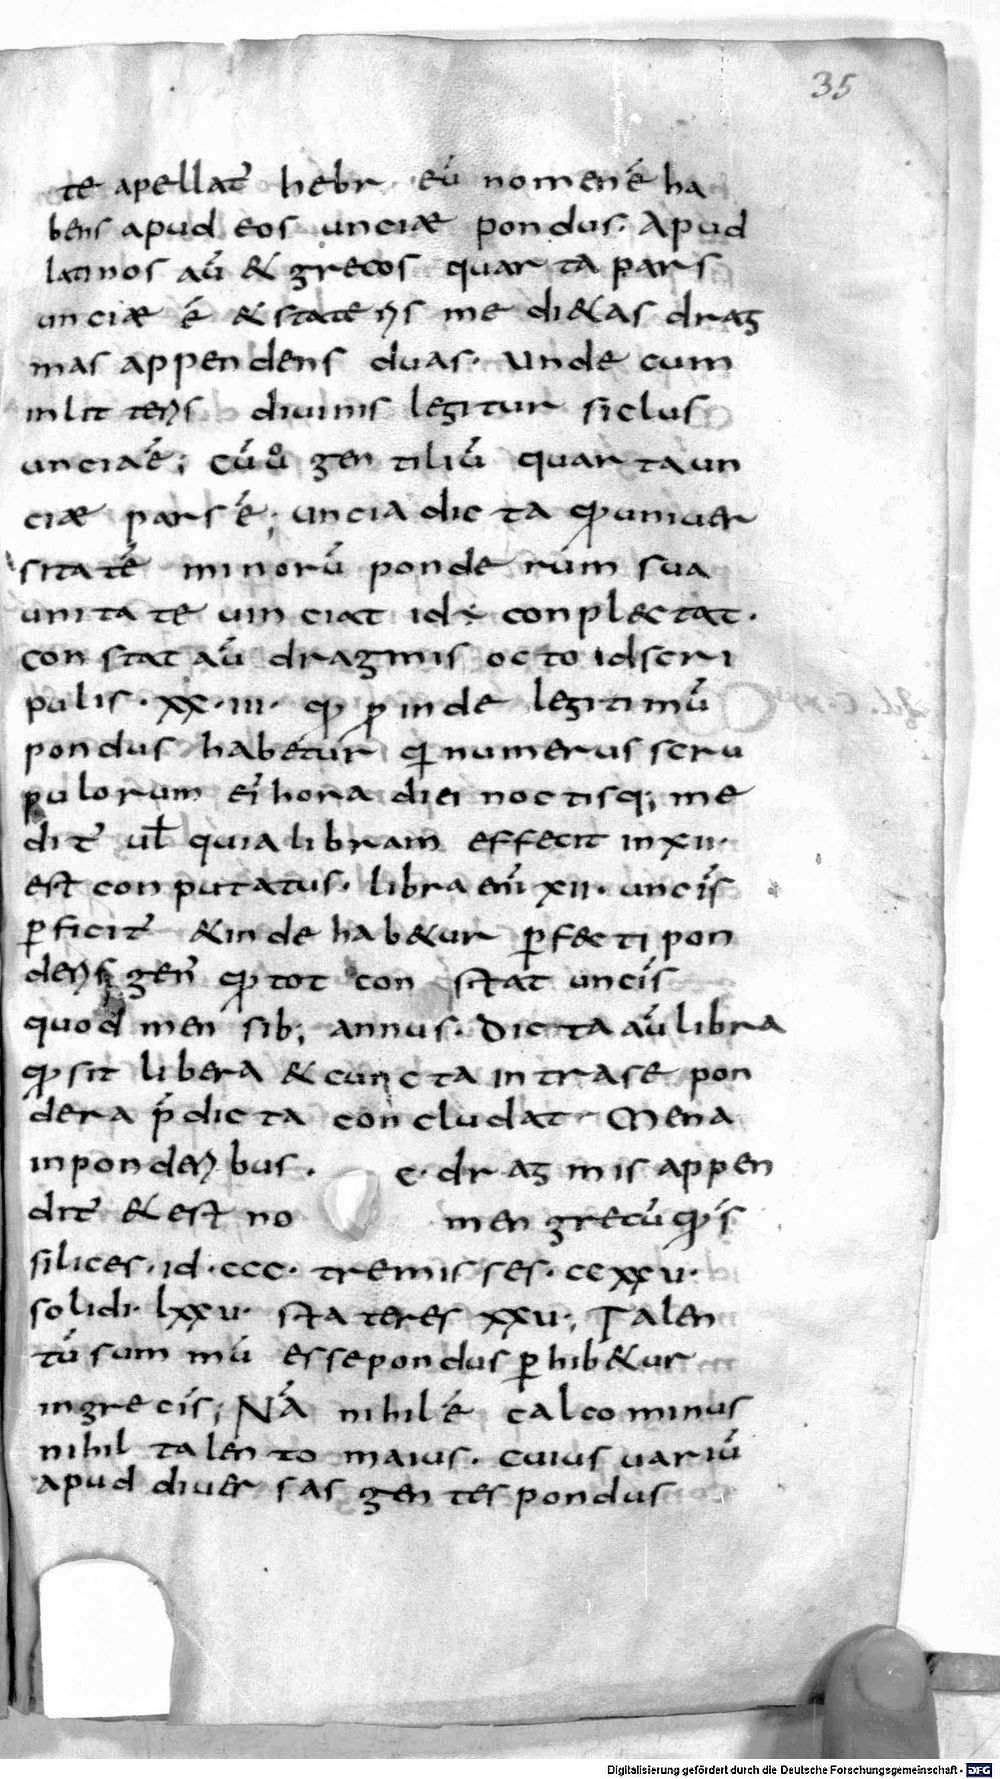 35
te apellat̄ hebr eū nomen ē ha
bens apud eos unciæ pondus. Apud
latinos aū & grecos quarta pars
unciæ ē & stateris medi&as drag
mas appendens duas. Unde cum
in litteris diuinis legitur siclus
uncia ē; cū ů gentiliū quarta un
ciæ pars ē; uncia dicta qđ uniuer
sitatē minorū ponderum sua
unitate uinciat id÷ conplectat.
constat aū dragmis octo id scri
pulis. xx. iii. qđ proinde legitimū
pondus habetur qi numerus scru
pulorum ei hora diei noctisq; me
dit̄ ul̄ quia libram effecit in xii.
est conputatus. libra eni xii. unciis
p̄ficit̄ & inde hab&ur p̄fecti pon
deris gen̄ qđ tot constat unciis
quod mensib; annus. Dicta aū libra
qđ sit libera & cuncta intra se pon
dera p̄dicta concludat Mena
in ponderibus. c. dragmis appen
dit̄ & est nomen grecū qđ ís
silices. id. ccc. tremisses. ccxxu.
solidi. lxxu. stateres xxu; Talen
tū summū esse pondus p̄hib&ur
in grecis; Nā nihil ē calco minus
nihil talento maius. cuius uariū
apud diuersas gentes pondus
Digitalisierung gefördert durch die Deutsche Forschungsgemeinschaft - DFG